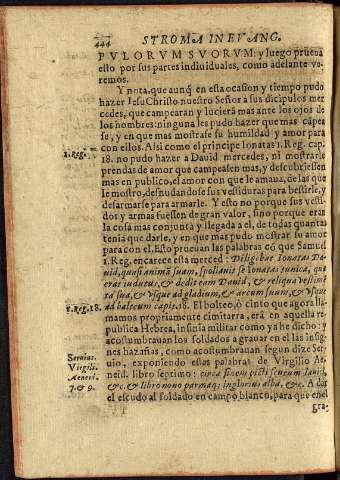 444
STROMA IN EVANG.
PVLORVM SVORVM: y luego prueua
esto por sus partes indiuiduales, como adelante ve-
remos.
Y nota, que aunq̃ en esta ocasion y tiempo pudo
hazer Iesu Christo nuestro Señor a sus dicipulos mer
cedes, que campearan y luciera mas ante los ojos de
los hombres: ninguna les pudo hazer que mas cápea
se, y en que mas mostrase su humildad y amor para
con ellos. Asi como el principe Ionatas 1. Reg. cap.
1. Reg.
18. no pudo hazer a Dauid mercedes, ni mostrarle
prendas de amor que campeasen mas, y descubriessen
mas en publico, el amor con que le amaua, de las que
le mostro, desnudandose sus vestiduras para bestirle, y
desarmarse para armarle. Y esto no porque sus vesti-
dos y armas fuessen de gran valor, sino porque eran
la cosa mas conjunta y llegada a el, de todas quantas
tenia que darle, y en que mas pudo mostrar su amor
para con el. Esto prueuan las palabras cõ que Samuel
1. Reg. encarece esta merced: Diligebat Ionatas Da-
uid, quasi animã suam, spoliauit se Ionatas tunica, qua
erat indutus, & dedit eam Dauid, & reliqua vestimẽ
ta sua, & vsque ad gladium, & arcum suum, & vsque
ad balteum
1. Reg. 18.
capit. 18. El bolteo, ò cinto que agora lla-
mamos propriamente cimitarra, erà en aquella re-
publica Hebrea, insinia militar como ya he dicho: y
acostumbrauan los soldados a grauar en el las insig-
nes hazañas, como acostumbrauan segun dize Ser-
Seruius.
uio, exponiendo esas palabras de Virgilio AE-
Virgili.
neid. libro septimo: circa finem picti scutum
Aeneid.
&c. & libro nono parmaq; inglorius alba, &c. A dos
7. & 9.
el escudo al soldado en campo blanco, para que en el
gra-